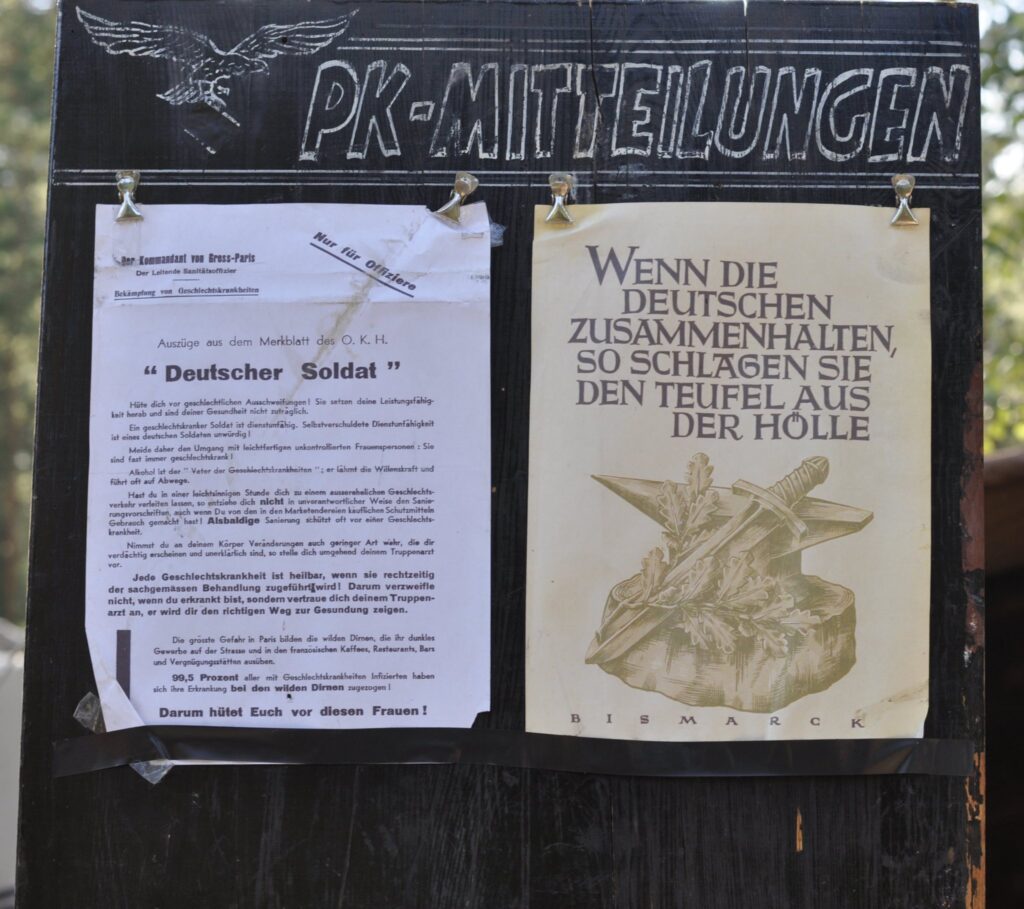 PK-MITTEILUNGEN
Der Kommandant von Gross-Paris
Der Leitende Sanitätsoffizier
Bekämpfung von Geschlechtskrankheiten
Nur für Offiziere
Auszüge aus dem Merkblatt des O. K. H.
“ Deutscher Soldat ”
Hüte dich vor geschlechtlichen Ausschweifungen ! Sie setzen deine Leistungsfähig-
keit herab und sind deiner Gesundheit nicht zuträglich.
Ein geschlechtskranker Soldat ist dienstunfähig. Selbstverschuldete Dienstunfähigkeit
ist eines deutschen Soldaten unwürdig !
Meide daher den Umgang mit leichtfertigen unkontrollierten Frauenspersonen : Sie
sind fast immer geschlechtskrank !
Alkohol ist der “ Vater der Geschlechtskrankheiten ” ; er lähmt die Willenskraft und
führt oft auf Abwege.
Hast du in einer leichtsinnigen Stunde dich zu einem ausserehelichen Geschlechts-
verkehr verleiten lassen, so entziehe dich nicht in unverantwortlicher Weise den Sanie-
rungsvorschriften, auch wenn Du von den in den Marketendereien käuflichen Schutzmitteln
Gebrauch gemacht hast ! Alsbaldige Sanierung schützt oft vor einer Geschlechts-
krankheit.
Nimmst du an deinem Körper Veränderungen auch geringer Art wahr, die dir
verdächtig erscheinen und unerklärlich sind, so stelle dich umgehend deinem Truppenarzt
vor.
Jede Geschlechtskrankheit ist heilbar, wenn sie rechtzeitig
der sachgemässen Behandlung zugeführt wird ! Darum verzweifle
nicht, wenn du erkrankt bist, sondern vertraue dich deinem Truppen-
arzt an, er wird dir den richtigen Weg zur Gesundung zeigen.
Die grösste Gefahr in Paris bilden die wilden Dirnen, die ihr dunkles
Gewerbe auf der Strasse und in den französischen Kaffees, Restaurants, Bars
und Vergnügungsstätten ausüben.
99,5 Prozent aller mit Geschlechtskrankheiten Infizierten haben
sich ihre Erkrankung bei den wilden Dirnen zugezogen !
Darum hütet Euch vor diesen Frauen !
WENN DIE
DEUTSCHEN
ZUSAMMENHALTEN,
SO SCHLAGEN SIE
DEN TEUFEL AUS
DER HÖLLE
BISMARCK